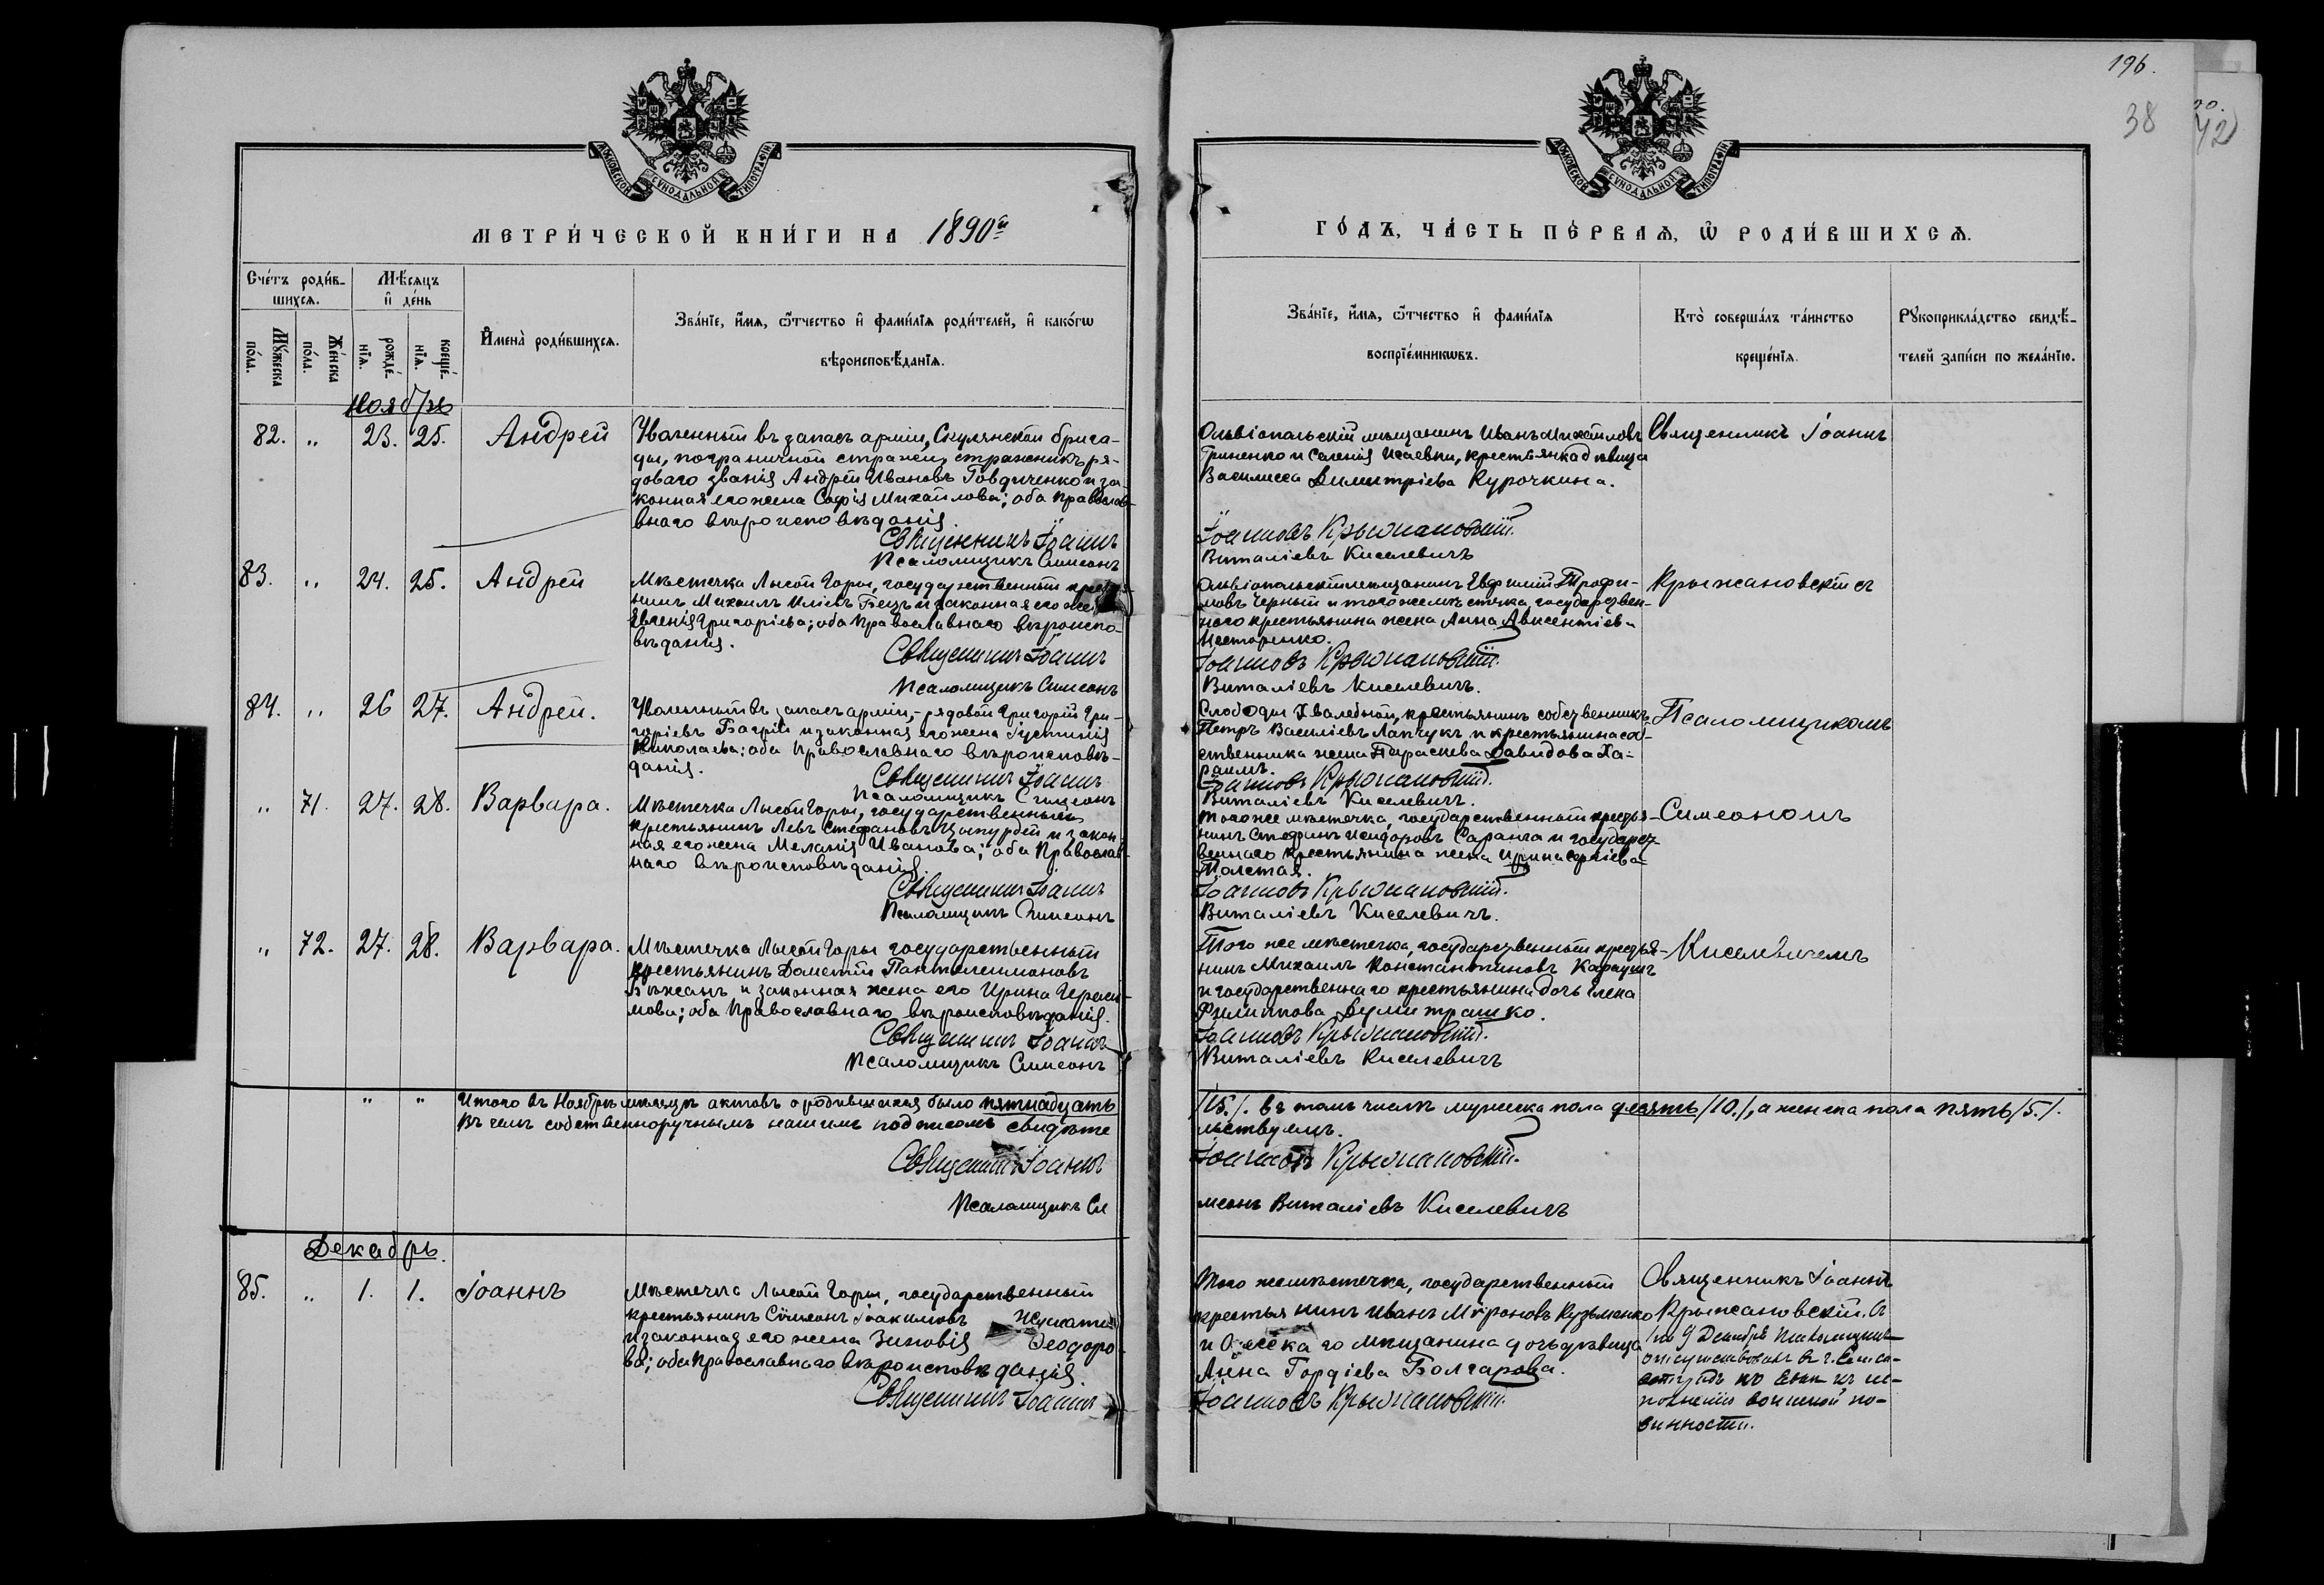 196.
38
42
МОСКОВСКОЙ СѴНОДАЛЬНОЙ ТИПОГРАФІИ
МОСКОВСКОЙ СѴНОДАЛЬНОЙ ТИПОГРАФІИ
МЕТРИ́ЧЕСКОЙ КНИ́ГИ НА 1890й
ГО́ДЪ, ЧА́СТЬ ПЕ́РВАѦ, Ѡ РОДИ́ВШИХСѦ.
Сче́тъ роди́в-
шихсѧ.
Мѣ́сѧцъ
и҆ де́нь
Мꙋ́жеска по́ла.
Же́нска по́ла.
рожде́-нїѧ.
креще́-нїѧ.
И҆мена̀ роди́вшихсѧ.
Зва́нїе, и҆́мѧ, ѻ҆́тчество и҆ фами́лїѧ роди́телей, и҆ како́гѡ
вѣроисповѣ́данїѧ.
Зва́нїе, и҆́мѧ, ѻ҆́тчество и҆ фами́лїѧ
воспрїе́мникѡвъ.
Кто̀ соверша́лъ та́инство
креще́нїѧ.
Рꙋкоприкла́дство свидѣ́-
телей за́писи по жела́нїю.
Ноябрь
82. " 23. 25. Андрей
Уволенный въ запасъ арміи, Скулянской брига-
ды, пограничной стражи, стражникъ ря-
доваго званія Андрей Ивановъ Говдиченко и за-
конная его жена Софія Михайлова; оба Православ-
внаго вѣроисповѣданія.
Священникъ Іоаннъ
Псаломщикъ Симеонъ
Ольвіопольскій мѣщанинъ Иванъ Михайловъ
Гриненко и Исаевки, крестьянка дѣвица
Василисса Димитріева Курочкина.
Іоанновъ Крыжановскій.
Виталіевъ Киселевичъ
Священникъ Іоаннъ
83. " 24. 25. Андрей
Мѣстечка Лысой Горы, государственный
нинъ Михаилъ Иліевъ Бецъ и законная его
Евгенія Григоріева; оба Православнаго вѣроиспо-
вѣданія.
Священникъ Іоаннъ
Псаломщикъ Симеонъ
Ольвіопольскій мѣщанинъ Евфимій Трофи-
мовъ Черный и того же мѣстечка государствен-
ного крестьянина жена Анна Авксентіева
Нестеренко.
Іоанновъ Крыжановскій.
Виталіевъ Киселевичъ.
Крыжановскій съ
84. " 26 27. Андрей.
Уволенный въ запасъ арміи,- рядовой Григорій Гри-
горіевъ Багрій и законная его жена Іустинія
Николаева; оба Православнаго вѣроисповѣ-
данія.
Священникъ Іоаннъ
Псаломщикъ Симеонъ
Слободы Хвалебной, крестьянинъ собственникъ
Петръ Василіевъ Лапчукъ и крестьянина соб-
ственника жена Параскева Давидова Ха-
раимъ.
Іоанновъ Крыжановскій.
Виталіевъ Киселевичъ.
Псаломщикомъ
" 71. 27. 28. Варвара.
Мѣстечка Лысой Горы, государственный
крестьянинъ Левъ Стефановъ и закон-
ная его жена Меланія Иванова; оба Православ-
наго вѣроисповѣданія.
Священникъ Іоаннъ
Псаломщикъ Симеонъ
Того же мѣстечка, государственный крестья-
нинъ Стефанъ Исидоровъ Саранча и государст-
веннаго крестьянина жена Ирина Сергіева
Толстая.
Іоанновъ Крыжановскій.
Виталіевъ Киселевичъ.
Симеономъ
" 72. 27. 28. Варвара.
Мѣстечка Лысой Горы государственный
крестьянинъ Дометій Пантелеимоновъ
и законная жена его Ирина Гераси-
мова; оба Православнаго вѣроисповѣданія.
Священникъ Іоаннъ
Псаломщикъ Симеонъ
Того же мѣстечка, государственный крестья-
нинъ Михаилъ Константиновъ Караушъ
и государственнаго крестьянина дочь Елена
Филиппова Думитрашко.
Іоанновъ Крыжановскій.
Виталіевъ Киселевичъ
Киселевичемъ
" " Итого въ Ноябрѣ мѣсяцѣ актовъ о родившихся было пятнадцать
/15./. въ томъ числѣ мужеска пола десять /10./, а женска пола пять /5./.
Въ чемъ собственноручнымъ нашимъ подписомъ свидѣте
льствуемъ.
Священникъ Іоаннъ
Іоанновъ Крыжановскій.
Псаломщикъ Си
меонъ Виталіевъ Киселевичъ
Декабрь.
85. " 1. 1. Іоаннъ
Мѣстечка Лысой Горы, государственный
крестьянинъ Сѵмеонъ Іоакимовъ
и законная его жена Зиновія Ѳеодоро-
ва; оба Православнаго вѣроисповѣданія.
Священникъ Іоаннъ
Того же мѣстечка, государственный
крестьянинъ Иванъ Мироновъ Кузьменко
и мѣщанина дочь дѣвица
Анна Гордіева Болгарова.
Іоанновъ Крыжановскій.
Священникъ Іоаннъ
Крыжановскій. Съ
по 9 Декабря Псаломщикъ
отсутствовалъ въ г.
по
воинской по-
винности.